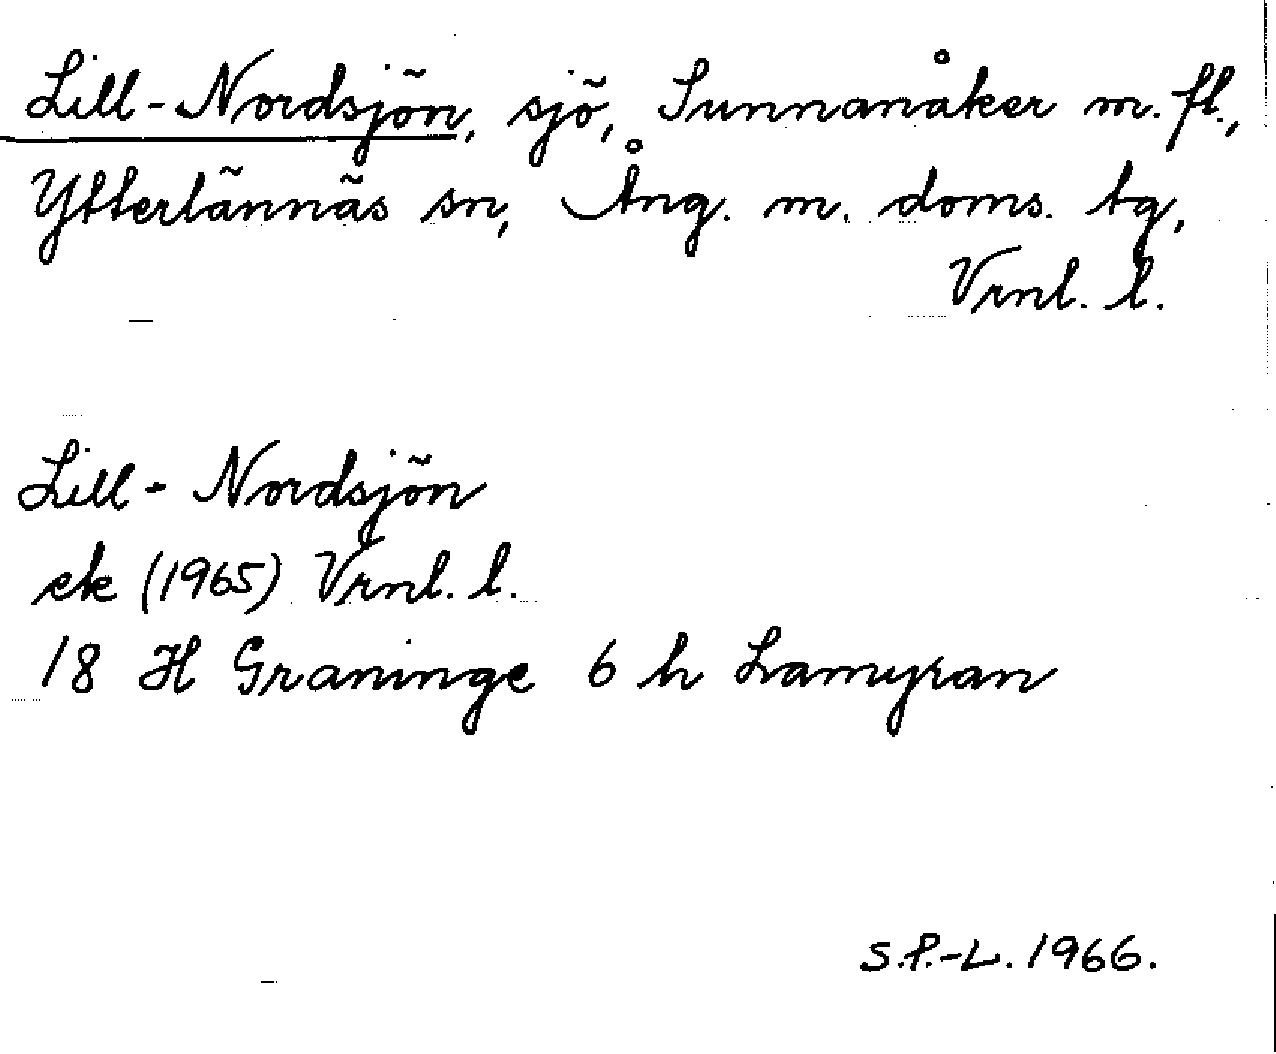 Lill-Nordsjön, sjö, Sunnanåker m. fl.,
Ytterlännäs sn, Ång. m. doms. tg,
Vrnl. l.
Lill-Nordsjön
ek (1965) Vrnl. l.
18 H Graninge 6 h Lamyran
S.P.-L. 1966.